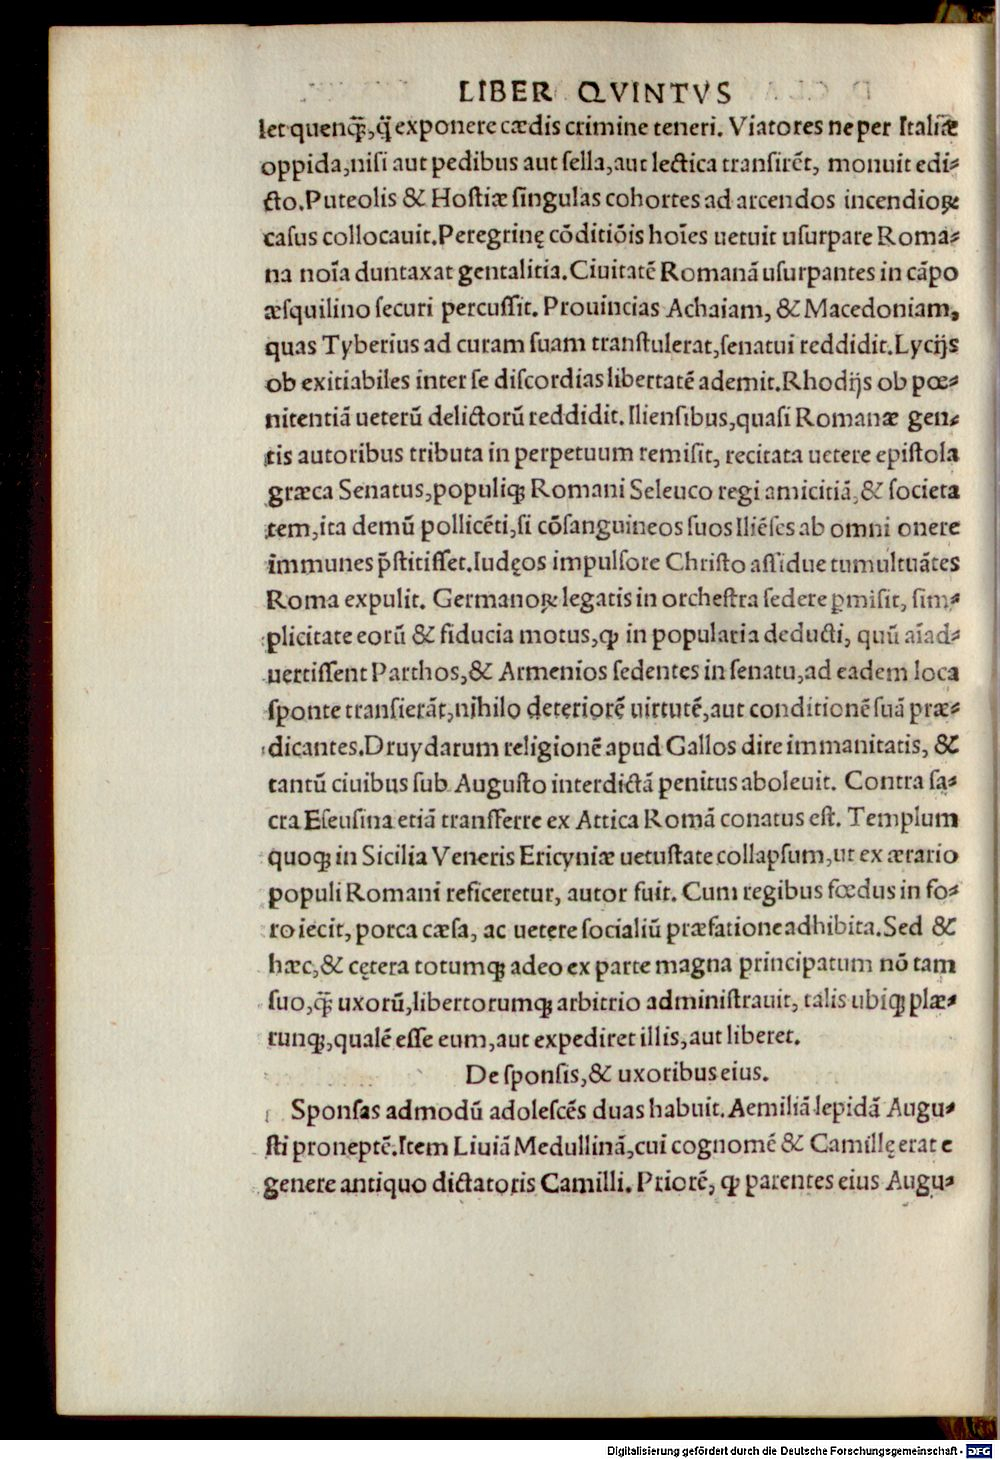 LIBER QVINTVS
let quenq̃;, q̃ exponere cædis crimine teneri. Viatores ne per Italiæ
oppida, niſi aut pedibus aut ſella, aut lectica tranſirẽt, monuit edi⸗
cto. Puteolis & Hoſtiæ ſingulas cohortes ad arcendos incendioꝝ
caſus collocauit. Peregrinę cõditiõis hoĩes uetuit uſurpare Roma⸗
na noĩa duntaxat gentalitia. Ciuitatẽ Romanã uſurpantes in cãpo
æſquilino ſecuri percuſſit. Prouincias Achaiam, & Macedoniam,
quas Tyberius ad curam ſuam tranſtulerat, ſenatui reddidit. Lycijs
ob exitiabiles inter ſe diſcordias libertatẽ ademit. Rhodijs ob pœ⸗
nitentiã ueterũ delictorũ reddidit. Ilienſibus, quaſi Romanæ gen⸗
tis autoribus tributa in perpetuum remiſit, recitata uetere epiſtola
græca Senatus, populiq; Romani Seleuco regi amicitiã, & ſocieta
tem, ita demũ pollicẽti, ſi cõſanguineos ſuos Iliẽſes ab omni onere
immunes p̃ſtitiſſet. Iudęos impulſore Chriſto aſſidue tumultuãtes
Roma expulit. Germanoꝝ legatis in orcheſtra ſedere ꝑmiſit, ſim⸗
plicitate eorũ & fiducia motus, ꝙ in popularia deducti, quũ aĩad⸗
uertiſſent Parthos, & Armenios ſedentes in ſenatu, ad eadem loca
ſponte tranſierãt, nihilo deteriorẽ uirtutẽ, aut conditionẽ ſuã præ⸗
dicantes. Druydarum religionẽ apud Gallos dire immanitatis, &
tantũ ciuibus ſub Auguſto interdictã penitus aboleuit. Contra ſa⸗
cra Eſeuſina etiã tranſferre ex Attica Romã conatus eſt. Templum
quoq; in Sicilia Veneris Ericyniæ uetuſtate collapſum, ut ex ærario
populi Romani reficeretur, autor fuit. Cum regibus fœdus in fo⸗
ro iecit, porca cæſa, ac uetere ſocialiũ præfatione adhibita. Sed &
hæc, & cętera totumq; adeo ex parte magna principatum nõ tam
ſuo, q̃; uxorũ, libertorumq; arbitrio adminiſtrauit, talis ubiq; plæ⸗
runq;, qualẽ eſſe eum, aut expediret illis, aut liberet.
De ſponſis, & uxoribus eius.
Sponſas admodũ adoleſcẽs duas habuit. Aemiliã lepidã Augu⸗
ſti proneptẽ. Item Liuiã Medullinã, cui cognomẽ & Camillę erat e
genere antiquo dictatoris Camilli. Priorẽ, ꝙ parentes eius Augu⸗
Digitalisierung gefördert durch die Deutsche Forschungsgemeinschaft - DFG